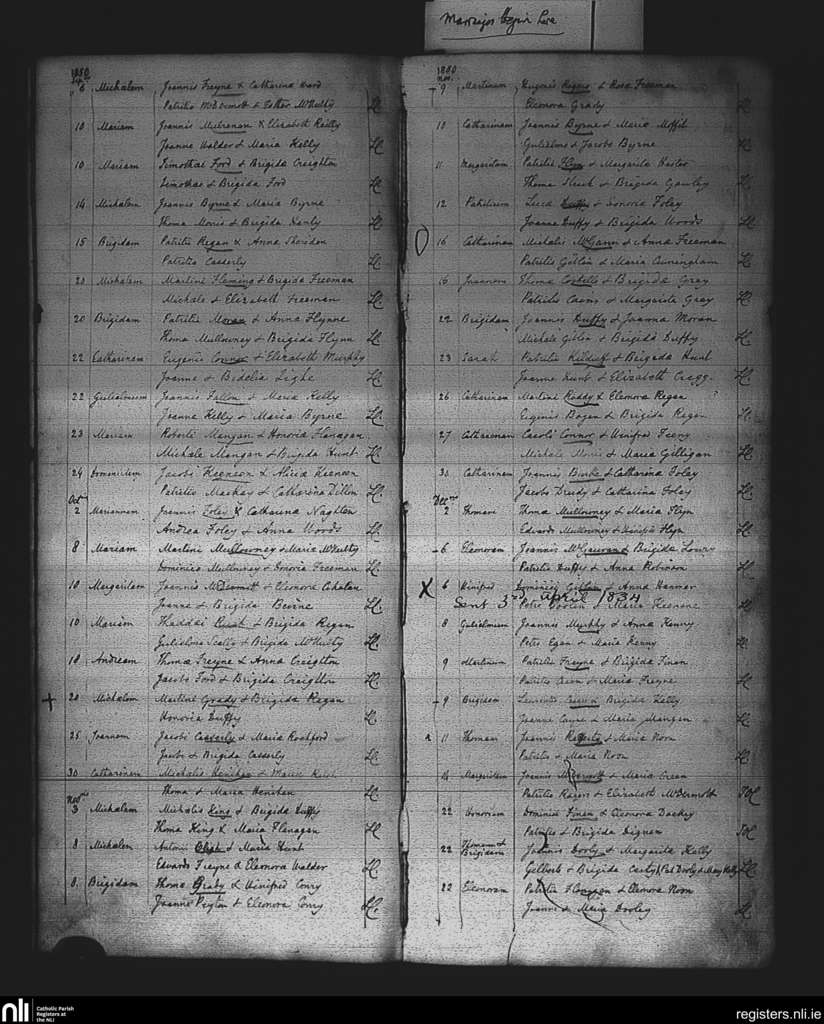 Marriages Begin Here
1880
6 Michalem Joannis Freyne & Catharina Ward
Patritio McDermott & Esther McNulty
10 Mariam Joannis Mulrenan & Elizabeth Reilly
Joanne Walder & Maria Kelly
10 Mariam Timothei Ford & Brigida Creighton
Timothae & Brigida Ford
14 Michalem Joannis Byrne & Maria Byrne
Thoma Morris & Brigida Hanly
15 Brigidam Patritii Regan & Anna Sheridan
Patritio Casserly
20 Michalem Martini Fleming & Brigida Freeman
Michale & Elizabeth Freeman
20 Brigidam Patritii Moran & Anna Flynne
Thoma Mullowney & Brigida Flynn
22 Catharinam Eugenii Connor & Elizabeth Murphy
Joanne & Bidelia Lighe
22 Gulielmum Joannis Fallon & Maria Kelly
Joanne Kelly & Maria Byrne
23 Mariam Roberti Mangan & Honoria Flanagan
Michale Mangan & Brigida Hunt
24 Jacobi Keenan & Alicia Keenan
Patritio Mackay & Catharina Dillon
Oct
2 Mariannam Joannis Foley & Catharina Naghten
Andrea Foley & Anna Woods
8 Mariam Martini Mullowney & Maria McNulty
Dominico Mullowney & Honoria Freeman
10 Margaritam Joannis McDermott & Eleonora Cohalan
Joanne & Brigida Beirne
10 Mariam Thaddai & Brigida Regan
Gulielmo Scally & Brigida McNulty
18 Andream Thoma Freyne & Anna Creighton
Jacobo Ford & Brigida Creighton
20 Michalem Martini Grady & Brigida Regan
Honoria Duffy
25 Joannem Jacobi Casserly & Maria Rochford
Jacobo & Brigida Casserly
30 Catharinam Michalis Henihan & Maria
Thoma & Maria Henihan
Nov
3 Michalem Michalis King & Brigida Duffy
Thoma King & Maria Flanagan
8 Michalem Antonii & Maria Hunt
Edvardo Freyne & Eleonora Walder
8 Brigidam Thoma Grady & Winifred Conry
Joanne Peyton & Eleonora Conry
1880
Nov
9 Martinum Eugenii Rogers & Rosa Freeman
Eleonora Grady
10 Catharinam Joannis Byrne & Maria Moffit
Gulielmo & Jacobo Byrne
11 Margaritam Patritii Flyn & Margarita Hester
Thoma & Brigida Gawley
12 Patritium Luca Duffy & Honoria Foley
Joanne Duffy & Brigida Woods
16 Catharinam Michalis McGann & Anna Freeman
Patritio Giblin & Maria Cunningham
16 Joannem Thoma Costello & Brigida Gray
Patritio & Margarita Gray
22 Brigidam Joannis Duffy & Joanna Moran
Michale Giblin & Brigida Duffy
23 Sarah Patritii Kilduff & Brigida Hunt
Joanne Hunt & Elizabeth Cregg
26 Catharinam Martini Roddy & Eleonora Regan
Eugenio & Brigida Regan
27 Catharinam Caroli Connor & Winifred Feeny
Michale Morris & Maria Gilligan
30 Catharinam Joannis Burke & Catharina Foley
Jacobo Drudy & Catharina Foley
Dec
2 Thomam Thoma Mullowney & Maria Flyn
Edvardo Mullowney & Winifred Flyn
6 Eleonoram Joannis McGauran & Brigida Lowry
Patritio Duffy & Anna Robinson
X 6 Winifred Dominici & Anna
Sent 3rd april 1934
Petro & Maria Keenane
8 Gulielmum Joannis Murphy & Anna Kenny
Petro Egan & Maria Kenny
9 Martinum Patritii Freyne & Brigida Finan
Patritio & Maria Freyne
9 Brigidam Laurentii & Brigida Kelly
Joanne Coyne & Maria Mangan
11 Thomam Joannis Roberts & Maria Noon
Patritio & Maria Noon
14 Margaritam Joannis McDermott & Maria Green
Patritio Rogers & Elizabeth McDermott
22 Honoriam Dominici Finan & Eleonora Dockry
Patritio & Brigida Dignan
22 Thomam & Brigidam Joannis Dooly & Margarita Kelly
Gilberto & Brigida (Pat Dooly & Mary Kelly
22 Eleonoram Patritii & Eleonora Noon
Joanne & Maria Dooley
nli Catholic Parish Registers at the NLI
registers.nli.ie